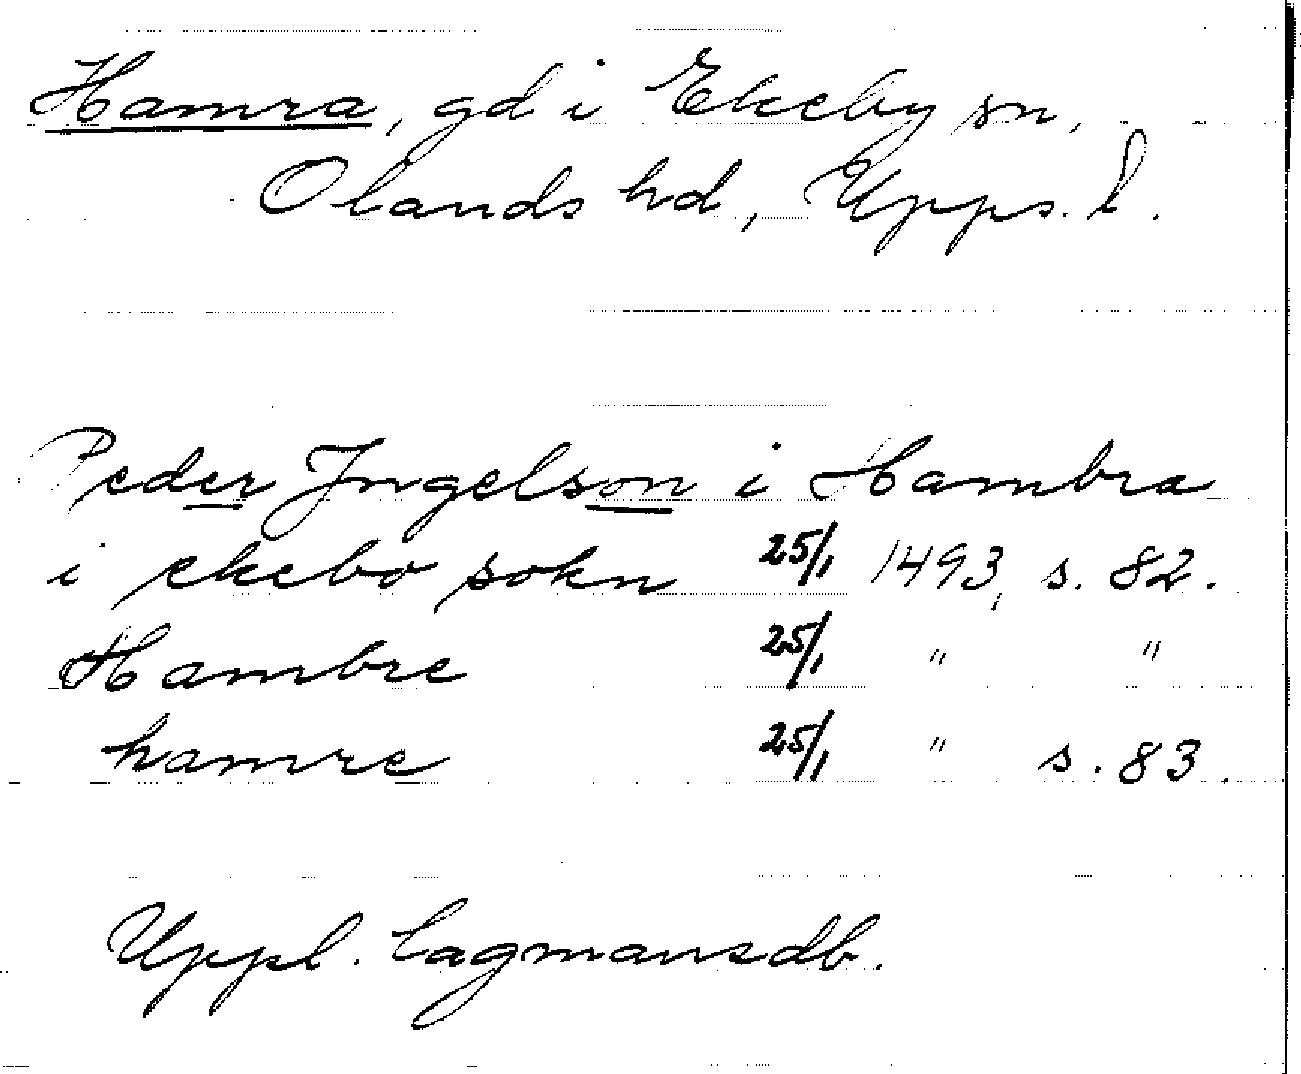 Hamra, gd i Ekeby sn,
Olands hd, Upps. l.
Peder Ingelson i Hambra
i ekebo sokn 25/1 1493, s. 82.
Hambre 25/1 " "
hamre 25/1 " s. 83.
Uppl. Lagmansdb.